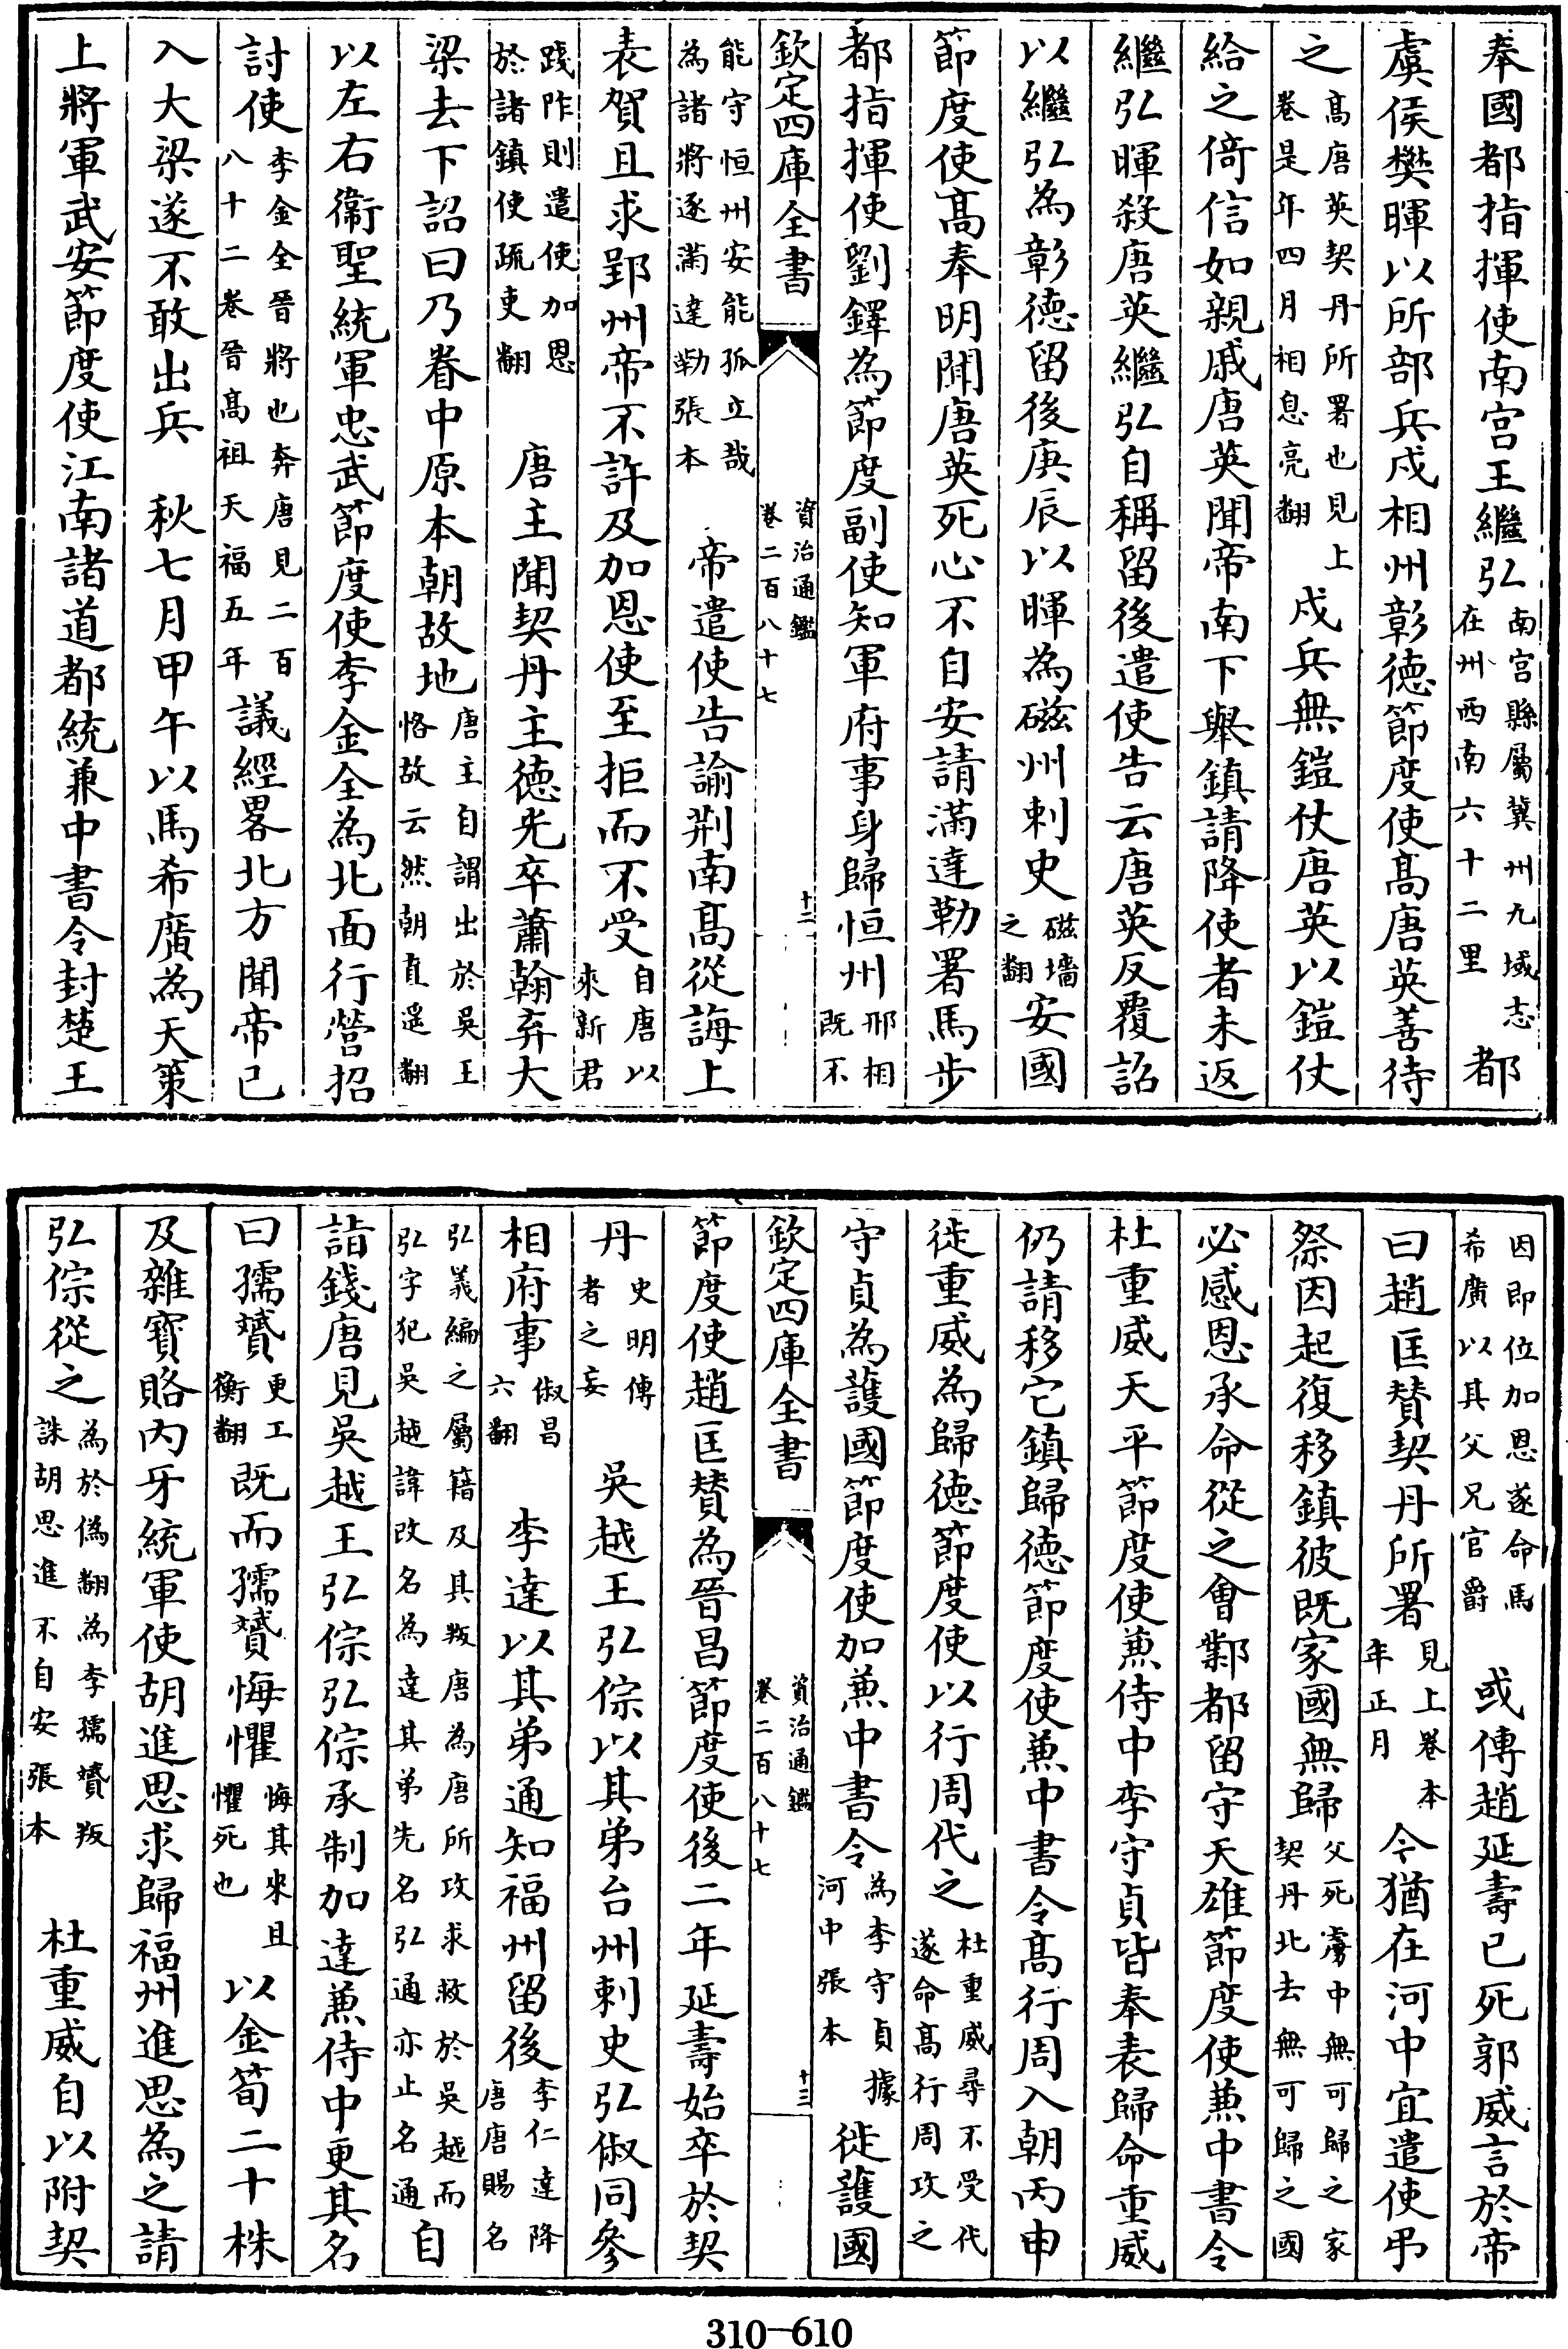 奉國都指揮使南宫王繼弘南宫縣屬冀州九域志在州西南六十二里都
虞侯樊暉以所部兵戍相州彰徳節度使髙唐英善待
之髙唐英契丹所署也見上卷是年四月相息亮翻戍兵無鎧仗唐英以鎧仗
給之倚信如親戚唐英聞帝南下舉鎮請降使者未返
繼弘暉殺唐英繼弘自稱留後遣使告云唐英反覆詔
以繼弘為彰徳留後庚辰以暉為磁州刺史磁墻之翻安國
節度使髙奉明聞唐英死心不自安請滿達勒署馬步
都指揮使劉鐸為節度副使知軍府事身歸恒州邢相既不
欽定四庫全書 資治通鑑卷二百八十七 十二
能守恒州安能孤立哉為諸將逐滿達勒張本 帝遣使告諭荆南髙從誨上
表賀且求郢州帝不許及加恩使至拒而不受自唐以來新君
踐阼則遣使加恩於諸鎮使疏吏翻 唐主聞契丹主徳光卒蕭翰弃大
梁去下詔曰乃眷中原本朝故地唐主自謂出於吳王恪故云然朝直遥翻
以左右衞聖統軍忠武節度使李金全為北面行營招
討使李金全晉將也奔唐見二百八十二卷晉髙祖天福五年議經畧北方聞帝已
入大梁遂不敢出兵 秋七月甲午以馬希廣為天策
上將軍武安節度使江南諸道都統兼中書令封楚王
因即位加恩遂命馬希廣以其父兄官爵 或傳趙延壽已死郭威言於帝
曰趙匡賛契丹所署見上卷本年正月今猶在河中宜遣使弔
祭因起復移鎮彼既家國無歸父死虜中無可歸之家契丹北去無可歸之國
必感恩承命從之會鄴都留守天雄節度使兼中書令
杜重威天平節度使兼侍中李守貞皆奉表歸命重威
仍請移它鎮歸徳節度使兼中書令髙行周入朝丙申
徙重威為歸徳節度使以行周代之杜重威尋不受代遂命髙行周攻之
守貞為護國節度使加兼中書令為李守貞據河中張本徙護國
欽定四庫全書 資治通鑑卷二百八十七 十三
節度使趙匡賛為晉昌節度使後二年延壽始卒於契
丹史明傳者之妄 吳越王弘倧以其弟台州刺史弘俶同參
相府事俶昌六翻 李達以其弟通知福州留後李仁達降唐唐賜名
弘義編之屬籍及其叛唐為唐所攻求救於吳越而弘字犯吳越諱改名為達其弟先名弘通亦止名通自
詣錢唐見吳越王弘倧弘倧承制加達兼侍中更其名
曰孺贇更工衡翻既而孺贇悔懼悔其來且懼死也以金筍二十株
及雜寶賂内牙統軍使胡進思求歸福州進思為之請
弘倧從之為於偽翻為李孺贇叛誅胡思進不自安張本 杜重威自以附契
310—610